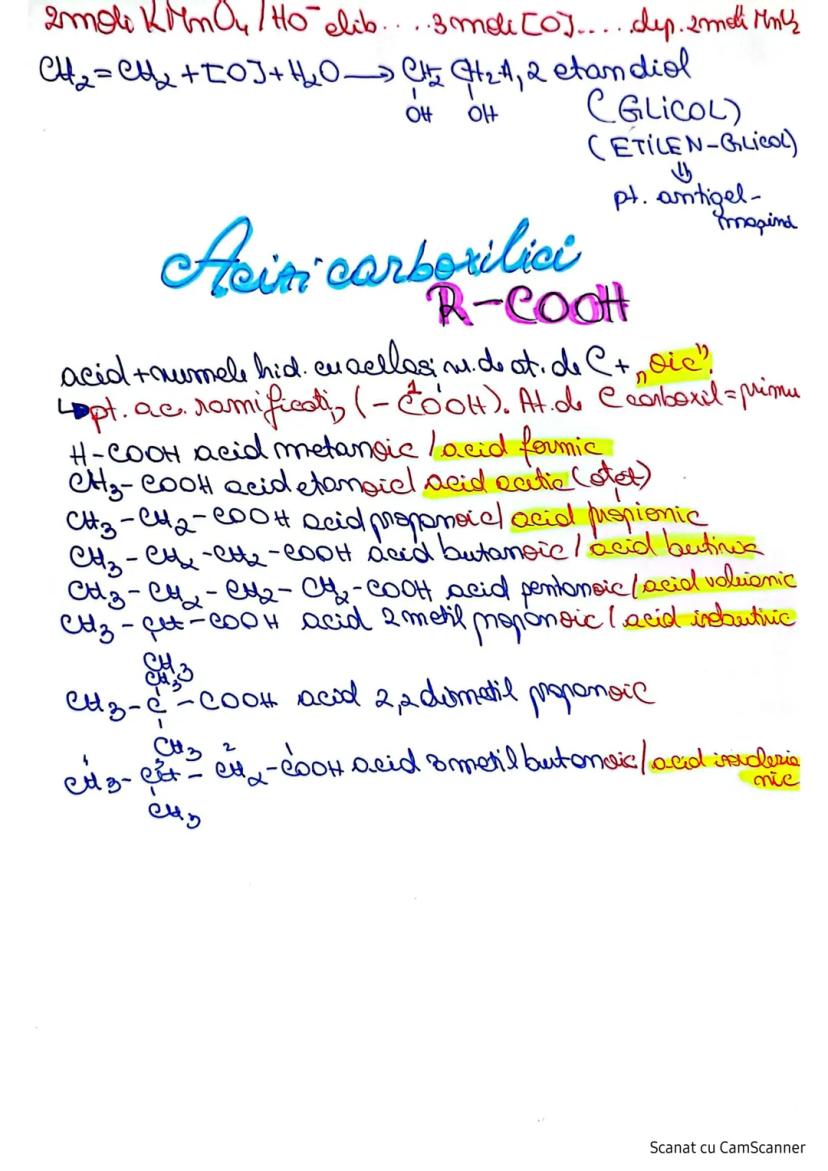 2moli KMnO4/HO- elib....3moli[O]....dep. 2moli MnO2
CH2=CH2+[O]+H2O→CH2 CH2 1,2 etandiol
OH OH (GLICOL)
(ETILEN-GLICOL)
⇓
pt. antigel-
mașină
Acizi carboxilici
R-COOH
acid+numele hid. cu același nr. de at. de C+„oic”.
↳pt. ac. ramificați, (-COOH). At. de C carboxil=primu
1
H-COOH acid metanoic /acid formic
CH3-COOH acid etanoic/ acid acetic (oțet)
CH3-CH2-COOH acid propanoic/ acid propionic
CH3-CH2-CH2-COOH acid butanoic/ acid butiric
CH3-CH2-CH2-CH2-COOH acid pentanoic/acid valerianic
CH3-CH-COOH acid 2metil propanoic/ acid izobutiric
CH3
CH3
CH3-C-COOH acid 2,2dimetil propanoic
CH3
3 2 1
CH3-CH-CH2-COOH acid 3metilbutanoic/acid izovaleria
nic
CH3
Scanat cu CamScanner